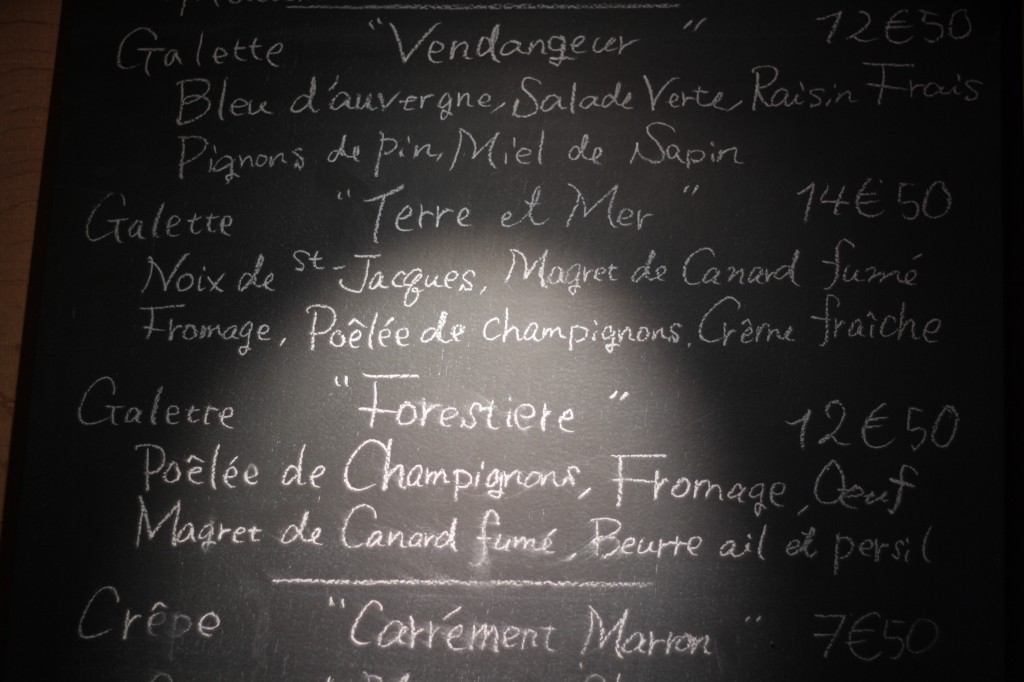 Galette "Vendangeur" 12€50
Bleu d'auvergne, Salade Verte, Raisin Frais
Pignons de pin, Miel de Sapin
Galette "Terre et Mer" 14€50
Noix de St-Jacques, Magret de Canard fumé
Fromage, Poêlée de champignons, Crème fraîche
Galette "Forestiere" 12€50
Poêlée de Champignons, Fromage, Oeuf
Magret de Canard fumé, Beurre ail et persil
Crêpe "Carrément Marron" 7€50